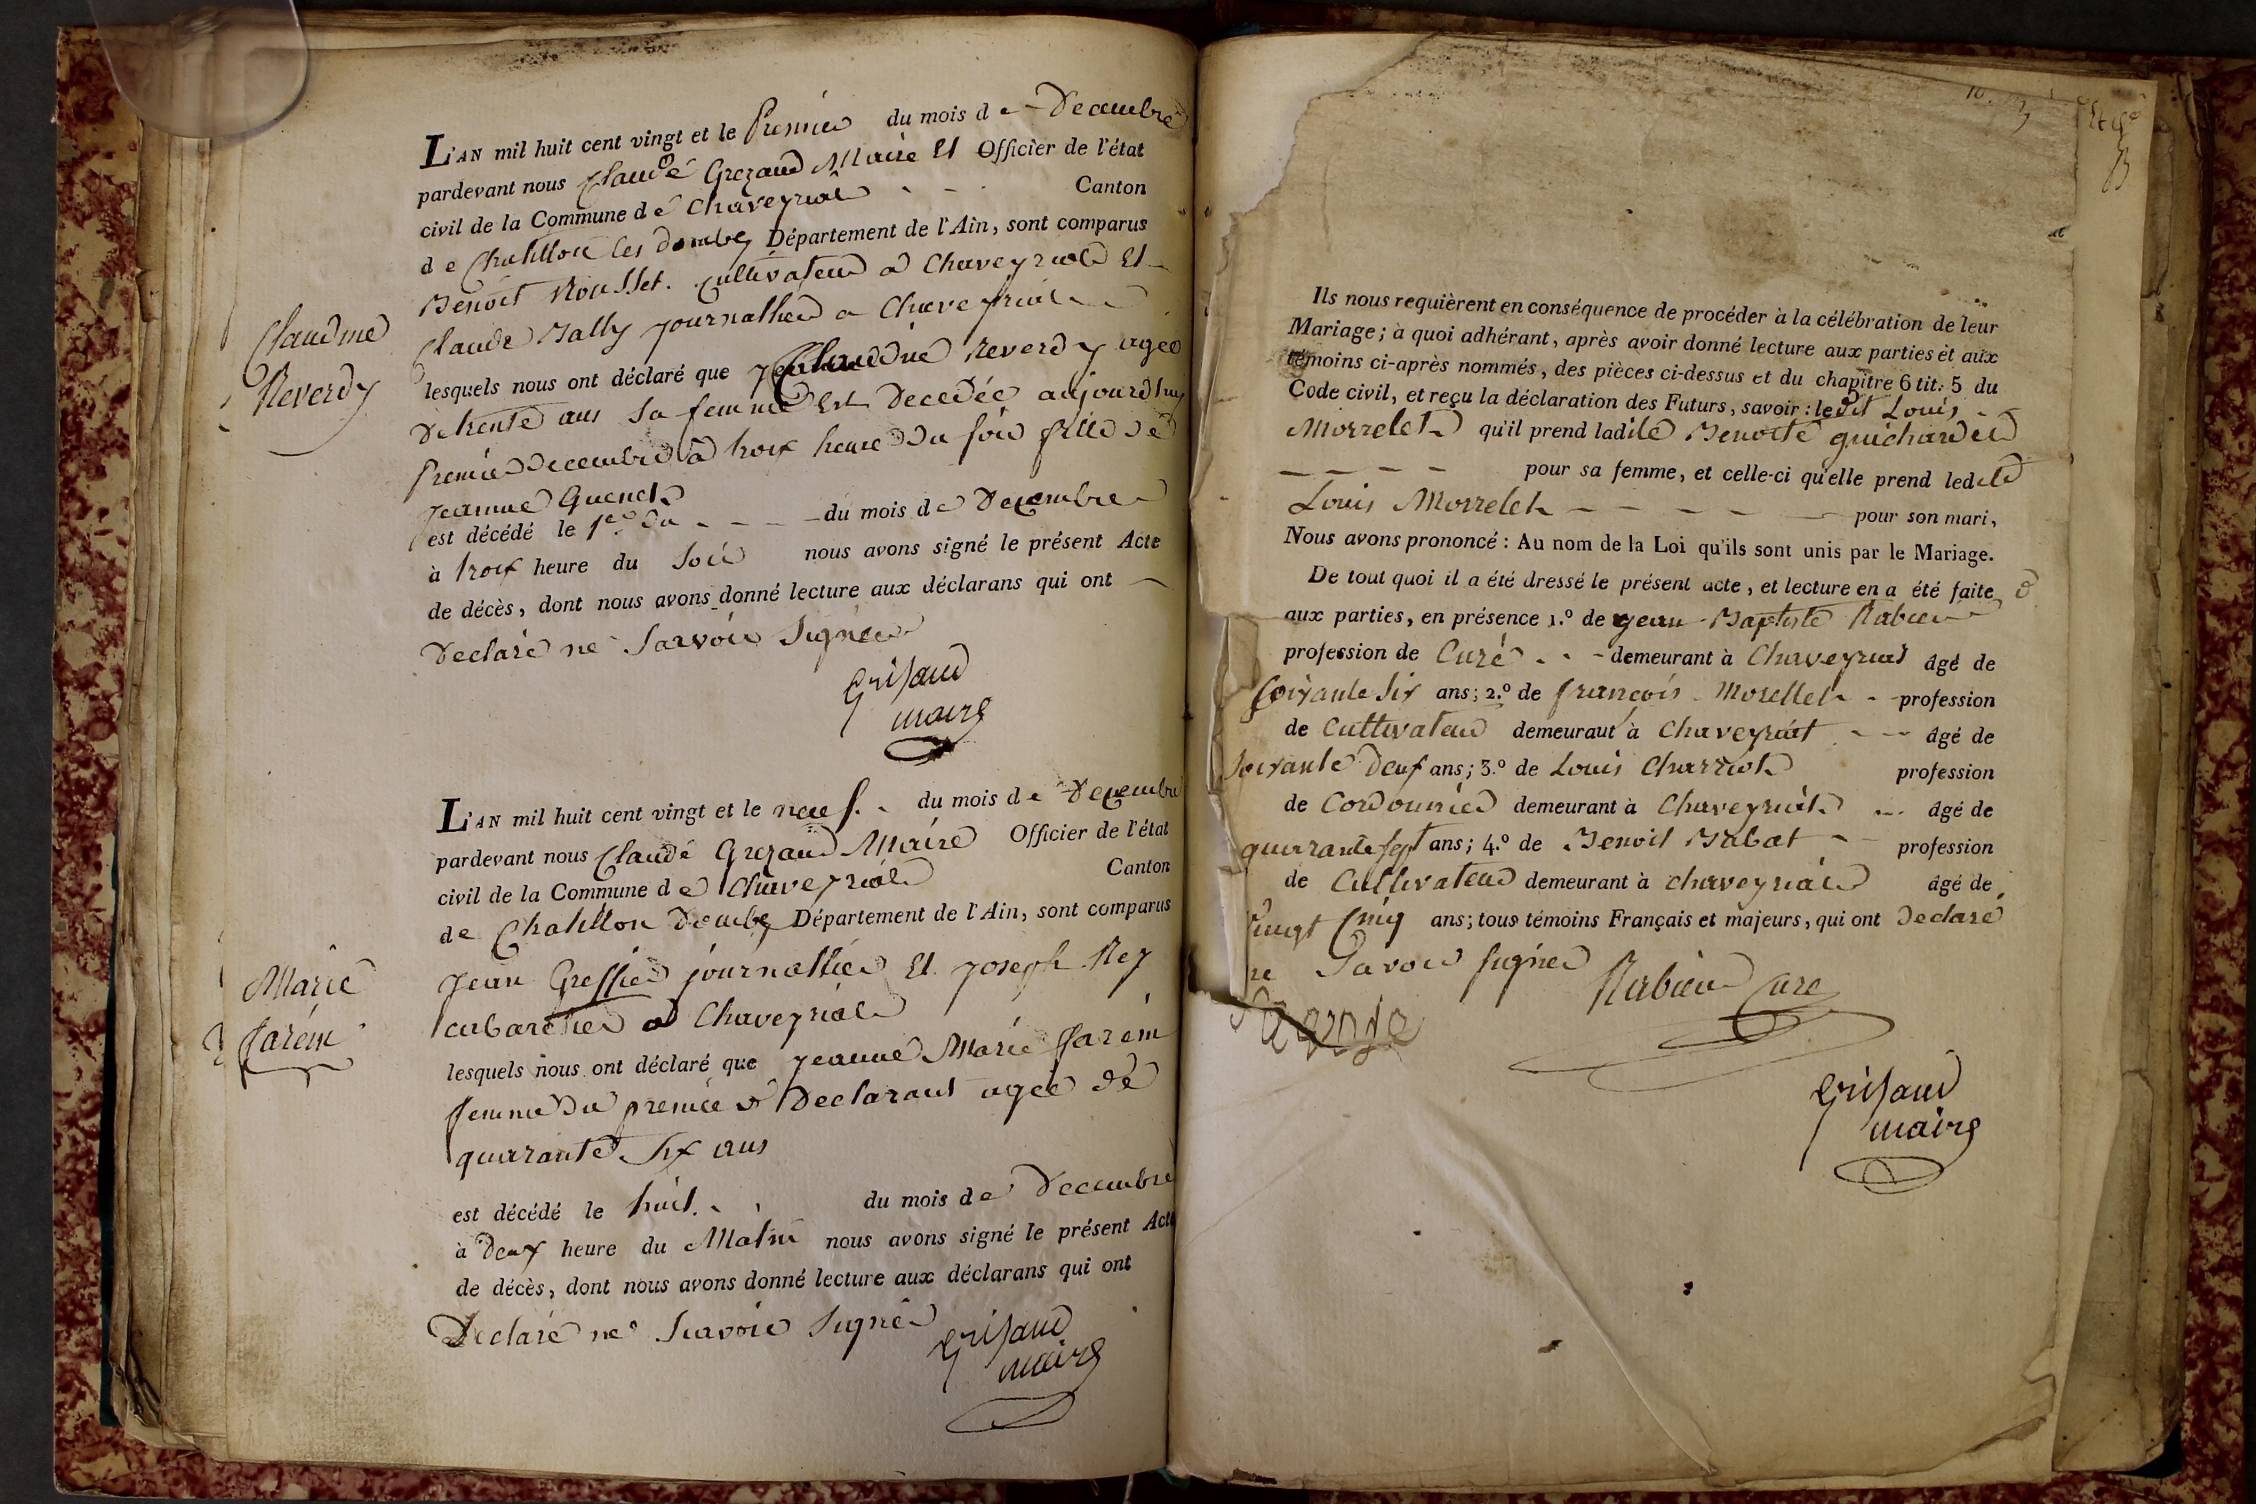 L'AN mil huit cent vingt et le Premier du mois de Decembre
pardevant nous Claude Grezaud Maire Et Officier de l'état
civil de la Commune de Chaveyriat Canton
de Chatillon les dombes Département de l'Ain, sont comparus
Benoit Rousset Cultivateur a Chaveyriat Et
Claude Bally journallier a Chaveyriat
lesquels nous ont déclaré que Claudine Reverdy agee
de trente ans sa femme Est Decedée aujourdhuy
Premier Decembre a troix heure du soir fille de
jeanne Guenet
est décédé le 1er du du mois de Decembre
à troix heure du soir nous avons signé le présent Acte
de décès, dont nous avons donné lecture aux déclarans qui ont
Declaré ne Savoir Signer
Grisaud
maire
Claudine
Reverdy
L'AN mil huit cent vingt et le neuf du mois de Decembre
pardevant nous Claude Grezaud Maire Officier de l'état
civil de la Commune de Chaveyriat Canton
de Chatillon Dombes Département de l'Ain, sont comparus
Jean Greffier journallier Et joseph Rey
cabaretier a Chaveyriat
lesquels nous ont déclaré que jeanne Marie farém
femme du premier Declarant agee de
quarante Six ans
est décédé le huit du mois de Decembre
à Deux heure du Matin nous avons signé le présent Acte
de décès, dont nous avons donné lecture aux déclarans qui ont
Declaré ne Scavoir Signer
Grisaud
maire
Marie
farém
Ils nous requièrent en conséquence de procéder à la célébration de leur
Mariage; à quoi adhérant, après avoir donné lecture aux parties et aux
témoins ci-après nommés, des pièces ci-dessus et du chapitre 6 tit. 5 du
Code civil, et reçu la déclaration des Futurs, savoir: ledit Louis
Morrelet qu'il prend ladite Benoite guichardet
pour sa femme, et celle-ci qu'elle prend ledit
Louis Morrelet pour son mari,
Nous avons prononcé: Au nom de la Loi qu'ils sont unis par le Mariage.
De tout quoi il a été dressé le présent acte, et lecture en a été faite
aux parties, en présence 1.º de jean Baptiste Rabuel
profession de Curé demeurant à Chaveyriat âgé de
Soixante Six ans; 2.º de françois Morellet profession
de Cultivateur demeurant à Chaveyriat âgé de
Soixante Deux ans; 3.º de Louis Charriot profession
de Cordonnier demeurant à Chaveyriat âgé de
quarante sept ans; 4.º de Benoit Babat profession
de Cultivateur demeurant à chaveyriat âgé de
Vingt Cinq ans; tous témoins Français et majeurs, qui ont Declaré
ne Savoir Signer
Curé
Grisaud
maire